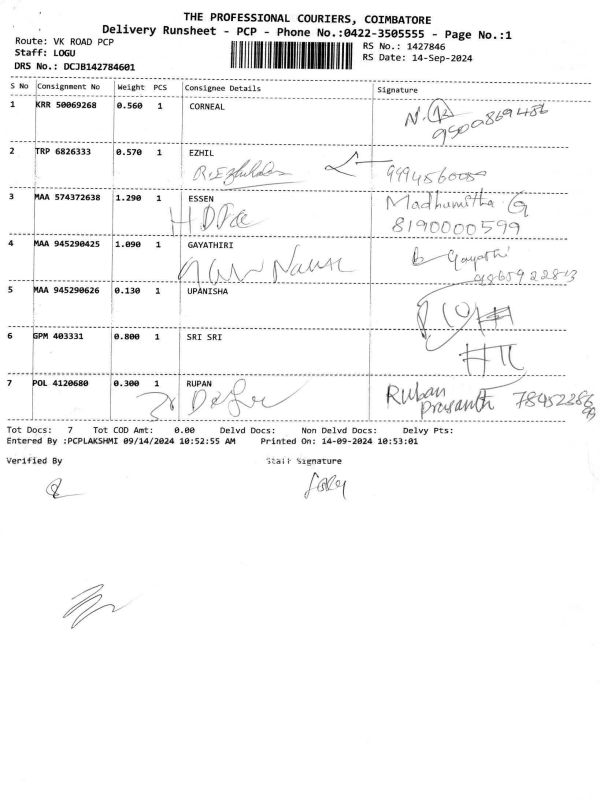 THE PROFESSIONAL COURIERS, COIMBATORE
Delivery Runsheet - PCP - Phone No.:0422-3505555 - Page No.:1
Route: VK ROAD PCP
Staff: LOGU
DRS No.: DCJB142784601
RS No.: 1427846
RS Date: 14-Sep-2024
S No Consignment No Weight PCS Consignee Details Signature
1 KRR 50069268 0.560 1 CORNEAL
2 TRP 6826333 0.570 1 EZHIL
3 MAA 574372638 1.290 1 ESSEN Madhumitha G
8190000599
4 MAA 945290425 1.090 1 GAYATHIRI
Gayathri
5 MAA 945290626 0.130 1 UPANISHA
6 GPM 403331 0.800 1 SRI SRI
7 POL 4120680 0.300 1 RUPAN Ruban
Prasanth
Tot Docs: 7 Tot COD Amt: 0.00 Delvd Docs: Non Delvd Docs: Delvy Pts:
Entered By :PCPLAKSHMI 09/14/2024 10:52:55 AM Printed On: 14-09-2024 10:53:01
Verified By Staff Signature